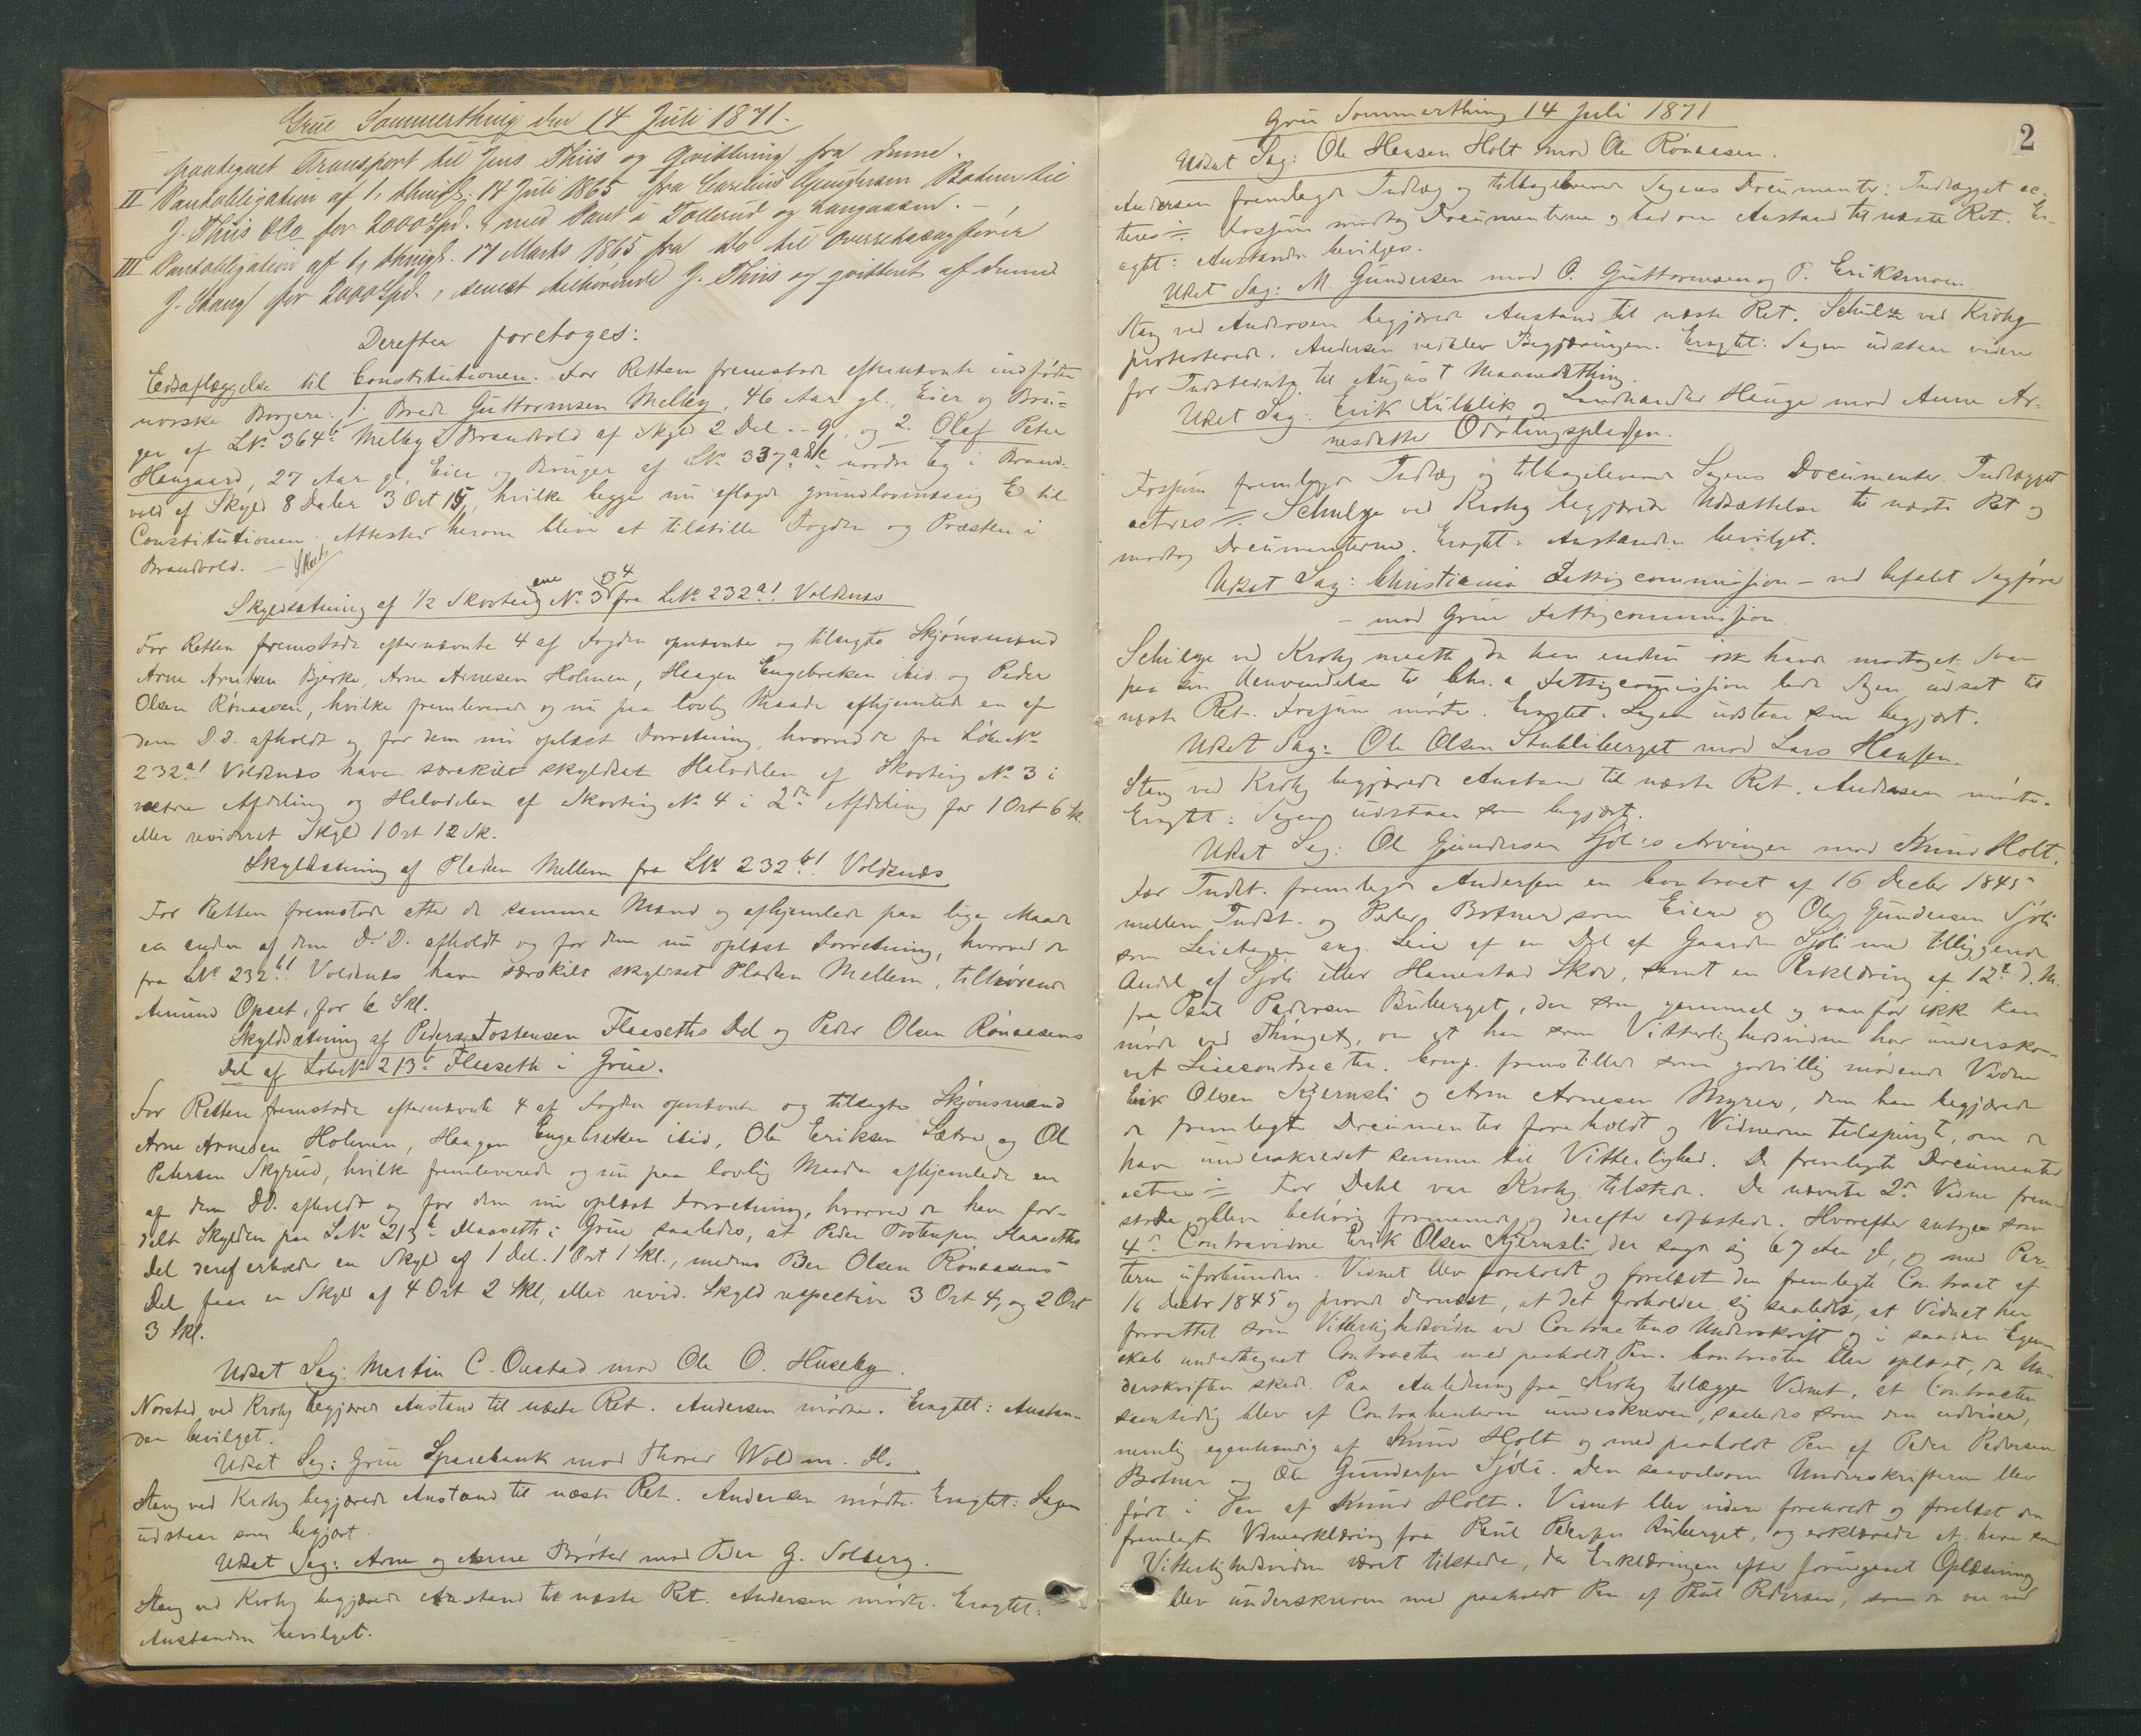 Grue Sommerthing den 14 Juli 1871.
paategnet Transport til Jens Thiis og Qvittering fra denne.
II Pantobligation af t. thingl. 14 Juli 1865 fra Carelius Gundersen til
J. Thiis & Co for 2000 Spd. med Pant i Tollerud og Langaasen.
III Pantobligation af t. thingl. 17 Marts 1865 fra do til Overretssagfører
J. Stang for 2000 Spd., senest tilhørende J. Thiis og qvitteret af denne
Derefter foretoges:
Edsaflæggelse til Constitutionen. For Retten fremstode efternævnte indfødte
norske Borgere: 1. Brede Guttormsen Melby, 46 Aar gl., Eier og Bru-
ger af LNo 364b Melby i Brandvold af Skyld 2 Dal. - 9, og 2. Olaf Peter
Haugaard, 27 Aar gl, Eier og Bruger af LNo 337 nordre Eg i Brand-
vold af Skyld 8 Daler 3 Ort 15, hvilke begge nu aflagde grundlovmæssig Ed til
Constitutionen. Attester herom bleve at tilstille Fogden og Præsten i
Brandvold.
Skyldsætning af 1/2 Skovteigene No 3 & 4 fra LNo 232a1 Voldnæs
For Retten fremstode efternævnte 4 af Fogden opnævnte og tilsagte Skjønsmænd
Arne Arntsen Bjerke, Arne Arnesen Holmen, Haagen Engebretsen ibid. og Peder
Olsen Rønaasen, hvilke fremleverede og nu paa lovlig Maade afhjemlede en af
dem D.D. afholdt og for dem nu oplæst Forretning, hvorved de fra LøbeNo
232a1 Voldnæs have særskilt skyldsat Halvdelen af Skovteig No 3 i
vestre Afdeling og Halvdelen af Skovteig No 4 i 2den Afdeling for 1 Ort 6 sk.
eller revideret Skyld 1 Ort 12 Sk.
Skyldsætning af Pladsen Mellem fra LNo 232b1 Voldnæs
For Retten fremstode atter de samme Mænd og afhjemlede paa lige Maade
en anden af dem D.D. afholdt og for dem nu oplæst Forretning, hvorved de
fra LNo 232b1 Voldnæs have særskilt skyldsat Pladsen Mellem, tilhørende
Amund Opset, for 6 Skl.
Skyldsætning af Peder Tostensen Flaaseths Del og Peder Olsen Rønaasens
Del af LøbeNo 213b Flaaseth i Grue.
For Retten fremstode efternævnte 4 af Fogden opnævnte og tilsagte Skjønsmænd
Arne Arnesen Holmen, Haagen Engebretsen ibid, Ole Eriksen Sætre og Ole
Petersen Skyrud, hvilke fremleverede og nu paa lovlig Maade afhjemlede en
af dem DD. afholdt og for dem nu oplæst Forretning, hvorved de have for-
delt Skylden paa LNo 213b Flaaseth i Grue saaledes, at Peder Tostensen Flaaseths
Del deraf erholder en Skyld af 1 Dal. 1 Ort 1 Skl., medens Peder Olsen Rønaasens
Del faar en Skyld af 4 Ort 2 Skl, eller revid. Skyld respective 3 Ort 4, og 2 Ort
3 Skl.
Udsat Sag: Martin C. Onstad mod Ole O. Huseby.
Norsted ved Krohg begjærede Anstand til næste Ret. Andersen mødte. Eragtet: Anstan-
den bevilget.
Udsat Sag: Grue Sparebank mod Thorer Wold m. fl.
Stang ved Krohg begjærede Anstand til næste Ret. Andersen mødte. Eragtet: Sagen
udstaar som begjært.
Udsat Sag: Arne og Anne Brøten mod Peder G. Solberg.
Stang ved Krohg begjærede Anstand til næste Ret. Andersen mødte. Eragtet:
Anstanden bevilget.
2
Grue Sommerthing 14 Juli 1871
Udsat Sag: Ole Hansen Holt mod Ole Rønaasen.
Andersen fremlagde Indlæg og tilbageleverede Sagens Documenter: Indlægget ac-
teres. Fossum modtog Documenterne og bad om Anstand til næste Ret. Er-
agtet: Anstanden bevilges.
Udsat Sag: M. Gundersen mod O. Guttormsen og P. Eriksmoen
Stang ved Andersen begjærede Anstand til næste Ret. Schulze ved Krohg
protesterede. Andersen vedblev Begjæringen. Eragtet: Sagen udstaar videre
for Indstevnte til August Maanedsthing.
Udsat Sag: Erik Kulblik og Landhandler Hauge mod Anne Ar-
nesdatter Odalingspladsen.
Fossum fremlagde Indlæg og tilbageleverede Sagens Documenter. Indlægget
acteres. Schulze ved Krohg begjærede Udsættelse til næste Ret og
modtog Documenterne. Eragtet: Anstanden bevilget.
Udsat Sag: Christiania Fattigcommission - ved befalet Sagfører
- mod Grue Fattigcommission.
Schulze ved Krohg maatte, da han endnu ikke havde modtaget Svar
paa sin Henvendelse til Chr.a Fattigcommission bede Sagen udsat til
næste Ret. Fossum mødte. Eragtet: Sagen udstaar som begjært.
Udsat Sag: Ole Olsen Stubliberget mod Lars Hansen.
Stang ved Krohg begjærede Anstand til næste Ret. Andersen mødte.
Eragtet: Sagen udstaar som begjært.
Udsat Sag: Ole Gundersen Sjøli's Arvinger mod Knud Holt.
For Indst. fremlagde Andersen en Contract af 16 Decbr 1845
mellem Indst. og Peder Botner som Eiere og Ole Gundersen Sjøli
som Leietager ang. Leie af en Del af Gaarden Sjøli med tilliggende
Andel af Sjøli eller Hanestad Skov, samt en Erklæring af 12te d.M.
fra Paul Pedersen Buberget, der som gammel og vanfør ikke kan
møde ved Thinget, om at han som Vitterlighedsvidne har underskre-
vet Leiecontracten. Comp. fremstillede som godvillig mødende Vidner
Erik Olsen Kjernsli og Arne Arnesen Myrer, dem han begjærede
de fremlagte Documenter foreholdt og Vidnerne tilspurgt, om de
have underskrevet samme til Vitterlighed. De fremlagte Documenter
acteres. For Dahl var Krohg tilstede. De nævnte 2de Vidner frem-
stode, bleve behørig formanede og derefter edfæstede. Hvorefter antoges som
4de Contravidne Erik Olsen Kjernsli, der sagde sig 67 Aar gl, og med Par-
terne uforbunden. Vidnet blev foreholdt og forelæst den fremlagte Contract af
16 Decbr 1845 og provede dernæst, at det forholder sig saaledes, at Vidnet har
forrettet som Vitterlighedsvidne ved Contractens Underskrift og i saadan Egen-
skab undertegnet Contracten med paaholdt Pen. Contracten blev oplæst, da Un-
derskriften skede. Paa Anledning fra Krohg tillægger Vidnet, at Contracten
samtidig blev af Contrahenterne underskreven, saaledes som den udviser,
nemlig egenhændig af Knud Holt og med paaholdt Pen af Peder Pedersen
Botner og Ole Gundersen Sjøli. Den saavelsom Underskrifterne blev
ført i Pen af Knud Holt. Vidnet blev videre foreholdt og forelæst den
fremlagte Vidneerklæring fra Paul Pedersen Buberget, og erklærede at have som
Vitterlighedsvidne været tilstede, da Erklæringen efter foregaaet Oplæsning
blev underskreven med paaholdt Pen af Paul Pedersen, som da var ved